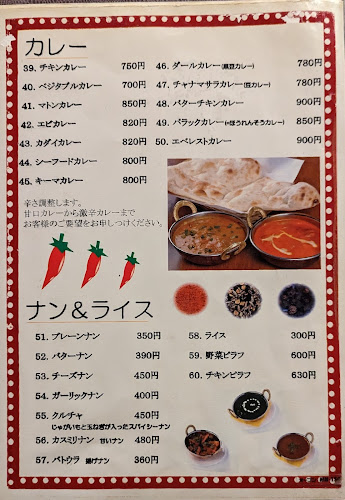 カレー
39. チキンカレー 750円
40. ベジタブルカレー 700円
41. マトンカレー 850円
42. エビカレー 820円
43. カダイカレー 820円
44. シーフードカレー 800円
45. キーマカレー 800円
46. ダールカレー(黒豆カレー) 780円
47. チャナマサラカレー(豆カレー) 780円
48. バターチキンカレー 900円
49. パラックカレー(ほうれんそうカレー) 850円
50. エベレストカレー 900円
辛さ調整します。
甘口カレーから激辛カレーまで
お客様のご要望をお申しつけください。
ナン&ライス
51. プレーンナン 350円
52. バターナン 390円
53. チーズナン 450円
54. ガーリックナン 400円
55. クルチャ 450円
じゃがいもと玉ねぎが入ったスパイシーナン
56. カスミリナン 甘いナン 480円
57. バトウラ 揚げナン 360円
58. ライス 300円
59. 野菜ピラフ 600円
60. チキンピラフ 630円